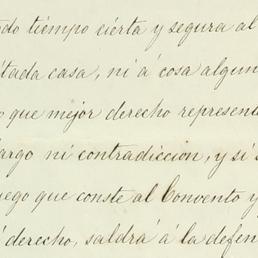 do tiempo cierta y segura al
itada casa, ni á cosa algun
o que mejor derecho represent
argo ni contradiccion, y si s
uego que conste al Convento y
derecho, saldrá á la defen